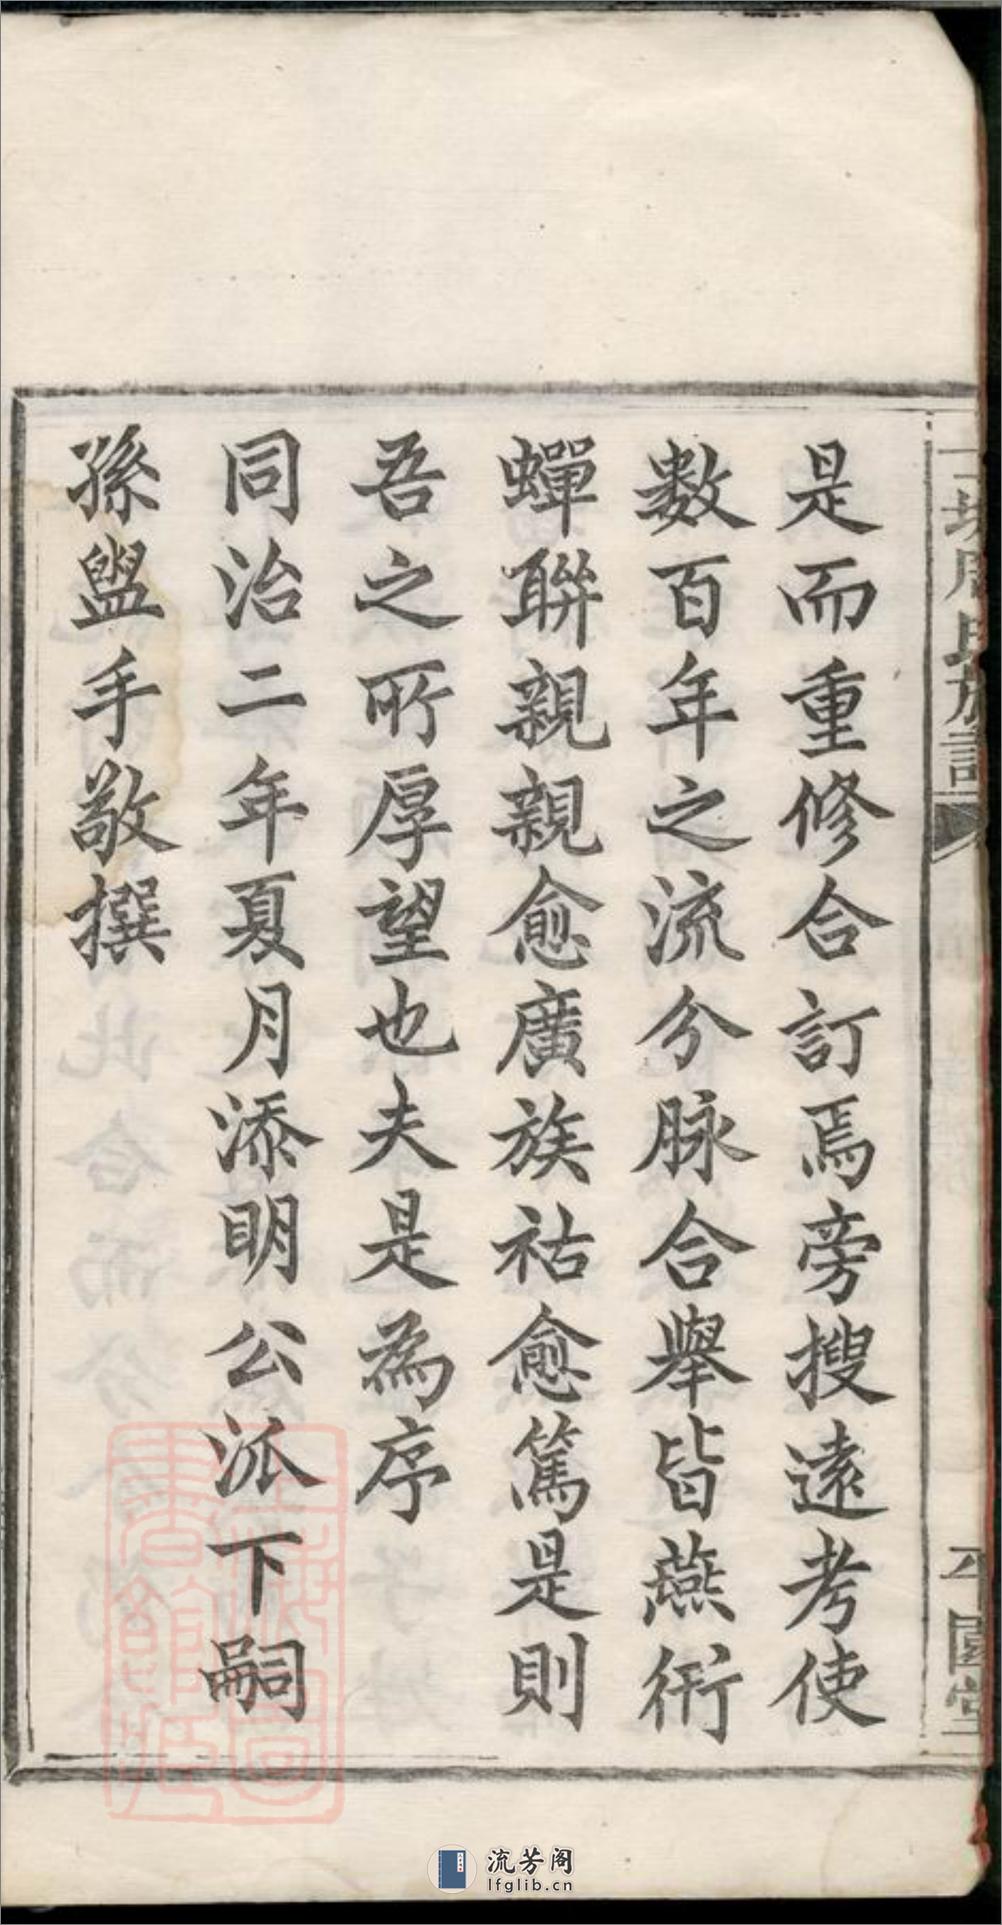 是而重修合訂焉旁搜遠考使
數百年之流分脉合舉皆燕衎
蟬聨親親愈廣族祜愈篤是則
吾之所厚望也夫是為序
同治二年夏月添明公派下嗣
孫盥手敬撰
周氏族譜
平園堂
上海圖書館藏
流芳阁
lfglib.cn